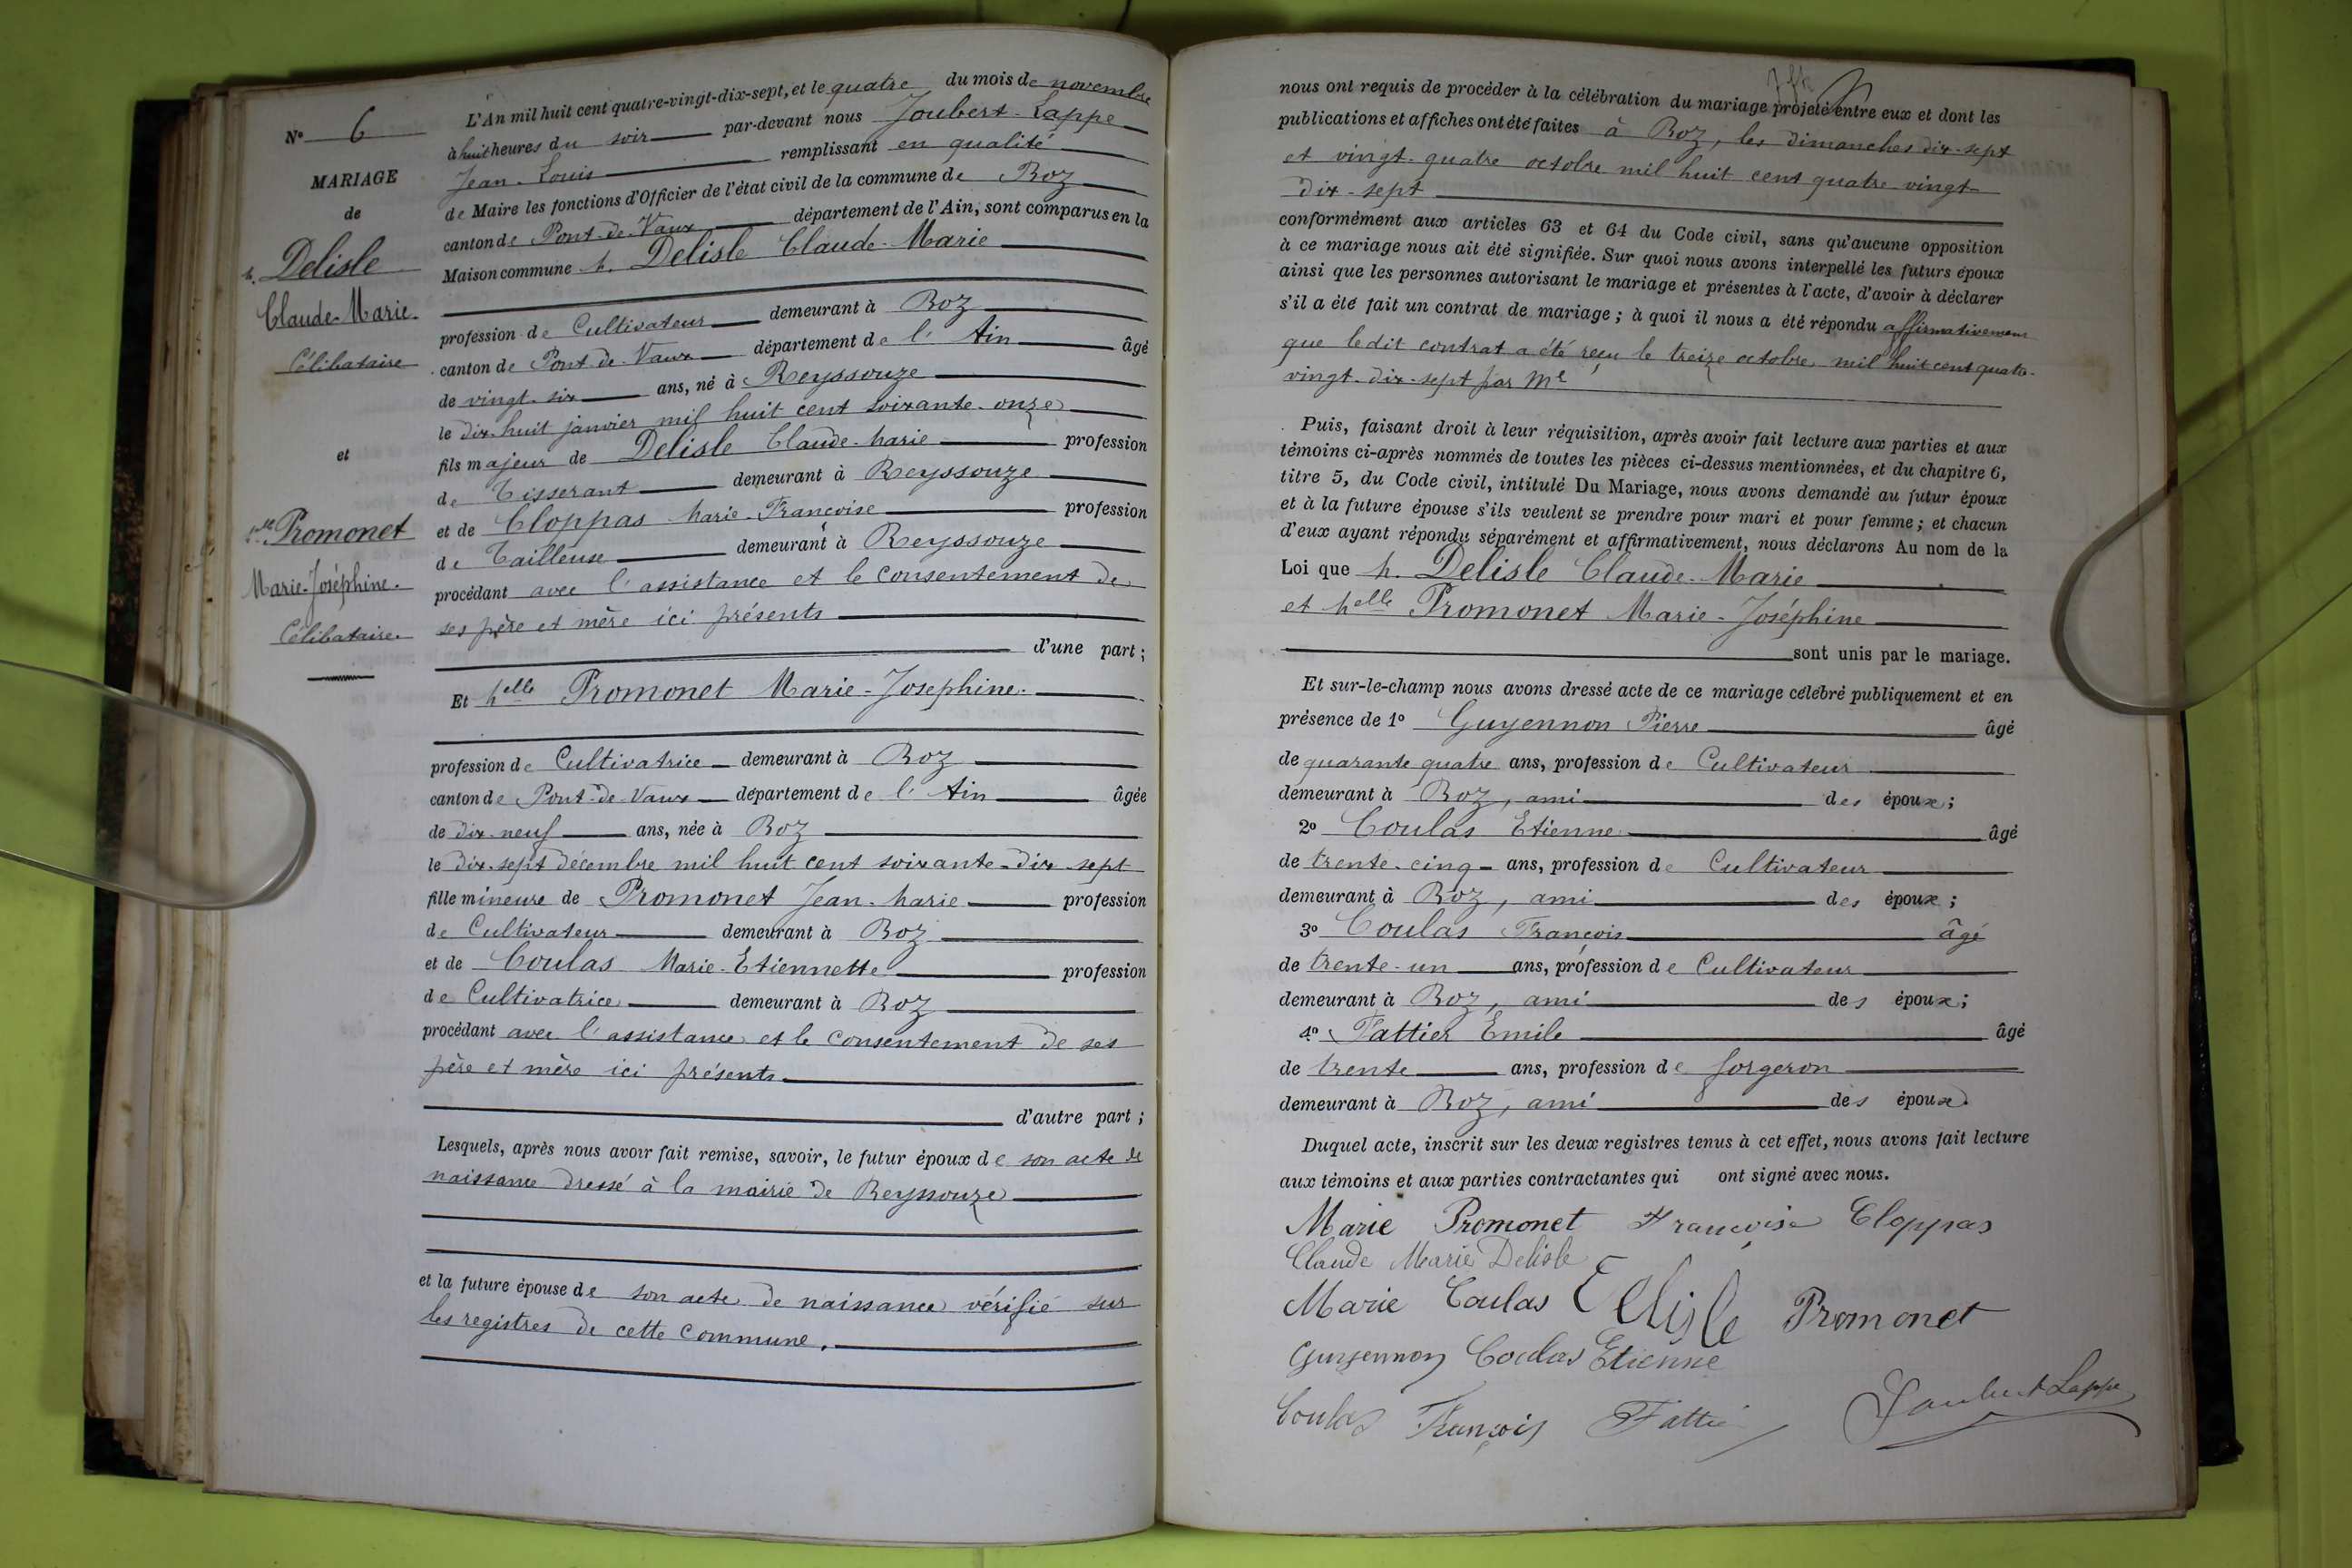 N° 6
MARIAGE
de
h. Delisle
Claude-Marie.
Célibataire
et
Promonet
Marie-Joséphine.
Célibataire.
L'An mil huit cent quatre-vingt-dix-sept, et le quatre du mois de novembre
à huit heures du soir par-devant nous Joubert-Lappe
Jean-Louis remplissant en qualité
de Maire les fonctions d'Officier de l'état civil de la commune de Boz
canton de Pont-de-Vaux département de l'Ain, sont comparus en la
Maison commune h. Delisle Claude-Marie
profession de Cultivateur demeurant à Boz
canton de Pont-de-Vaux département de l'Ain âgé
de vingt-six ans, né à Reyssouze
le dix-huit janvier mil huit cent soixante-onze
fils majeur de Delisle Claude-harie profession
de Tisserant demeurant à Reyssouze
et de Cloppas harie-Francoise profession
de Tailleuse demeurant à Reyssouze
procédant avec l'assistance et le consentement de
ses père et mère ici présents
d'une part ;
Et helle Promonet Marie-Josephine.
profession de Cultivatrice demeurant à Boz
canton de Pont-de-Vaux département de l'Ain âgée
de dix-neuf ans, née à Boz
le dix-sept décembre mil huit cent soixante-dix-sept
fille mineure de Promonet Jean-harie profession
de Cultivateur demeurant à Boz
et de Coulas Marie-Etiennette profession
de Cultivatrice demeurant à Boz
procédant avec l'assistance et le consentement de ses
père et mère ici présents
d'autre part ;
Lesquels, après nous avoir fait remise, savoir, le futur époux de son acte de
naissance dressé à la mairie de Reyssouze
et la future épouse de son acte de naissance vérifié sur
les registres de cette commune.
nous ont requis de procéder à la célébration du mariage projeté entre eux et dont les
publications et affiches ont été faites à Boz, les dimanches dix-sept
et vingt-quatre octobre mil huit cent quatre-vingt
dix-sept
conformément aux articles 63 et 64 du Code civil, sans qu'aucune opposition
à ce mariage nous ait été signifiée. Sur quoi nous avons interpellé les futurs époux
ainsi que les personnes autorisant le mariage et présentes à l'acte, d'avoir à déclarer
s'il a été fait un contrat de mariage ; à quoi il nous a été répondu affirmativement
que ledit contrat a été reçu le treize octobre mil huit cent quatre-
vingt-dix-sept par Me
Puis, faisant droit à leur réquisition, après avoir fait lecture aux parties et aux
témoins ci-après nommés de toutes les pièces ci-dessus mentionnées, et du chapitre 6,
titre 5, du Code civil, intitulé Du Mariage, nous avons demandé au futur époux
et à la future épouse s'ils veulent se prendre pour mari et pour femme ; et chacun
d'eux ayant répondu séparément et affirmativement, nous déclarons Au nom de la
Loi que h. Delisle Claude-Marie
et helle Promonet Marie-Joséphine
sont unis par le mariage.
Et sur-le-champ nous avons dressé acte de ce mariage célébré publiquement et en
présence de 1° Guyennon Pierre âgé
de quarante quatre ans, profession de Cultivateur
demeurant à Boz, ami des époux ;
2° Coulas Etienne âgé
de trente-cinq ans, profession de Cultivateur
demeurant à Boz, ami des époux ;
3° Coulas Francois âgé
de trente-un ans, profession de Cultivateur
demeurant à Boz, ami des époux ;
4° Fattier Emile âgé
de trente ans, profession de forgeron
demeurant à Boz, ami des époux.
Duquel acte, inscrit sur les deux registres tenus à cet effet, nous avons fait lecture
aux témoins et aux parties contractantes qui ont signé avec nous.
Marie Promonet Françoise Cloppas
Claude Marie Delisle
Marie Coulas Delisle Promonet
Guyennon Coulas Etienne
Coulas François Fattié Joubert Lappe